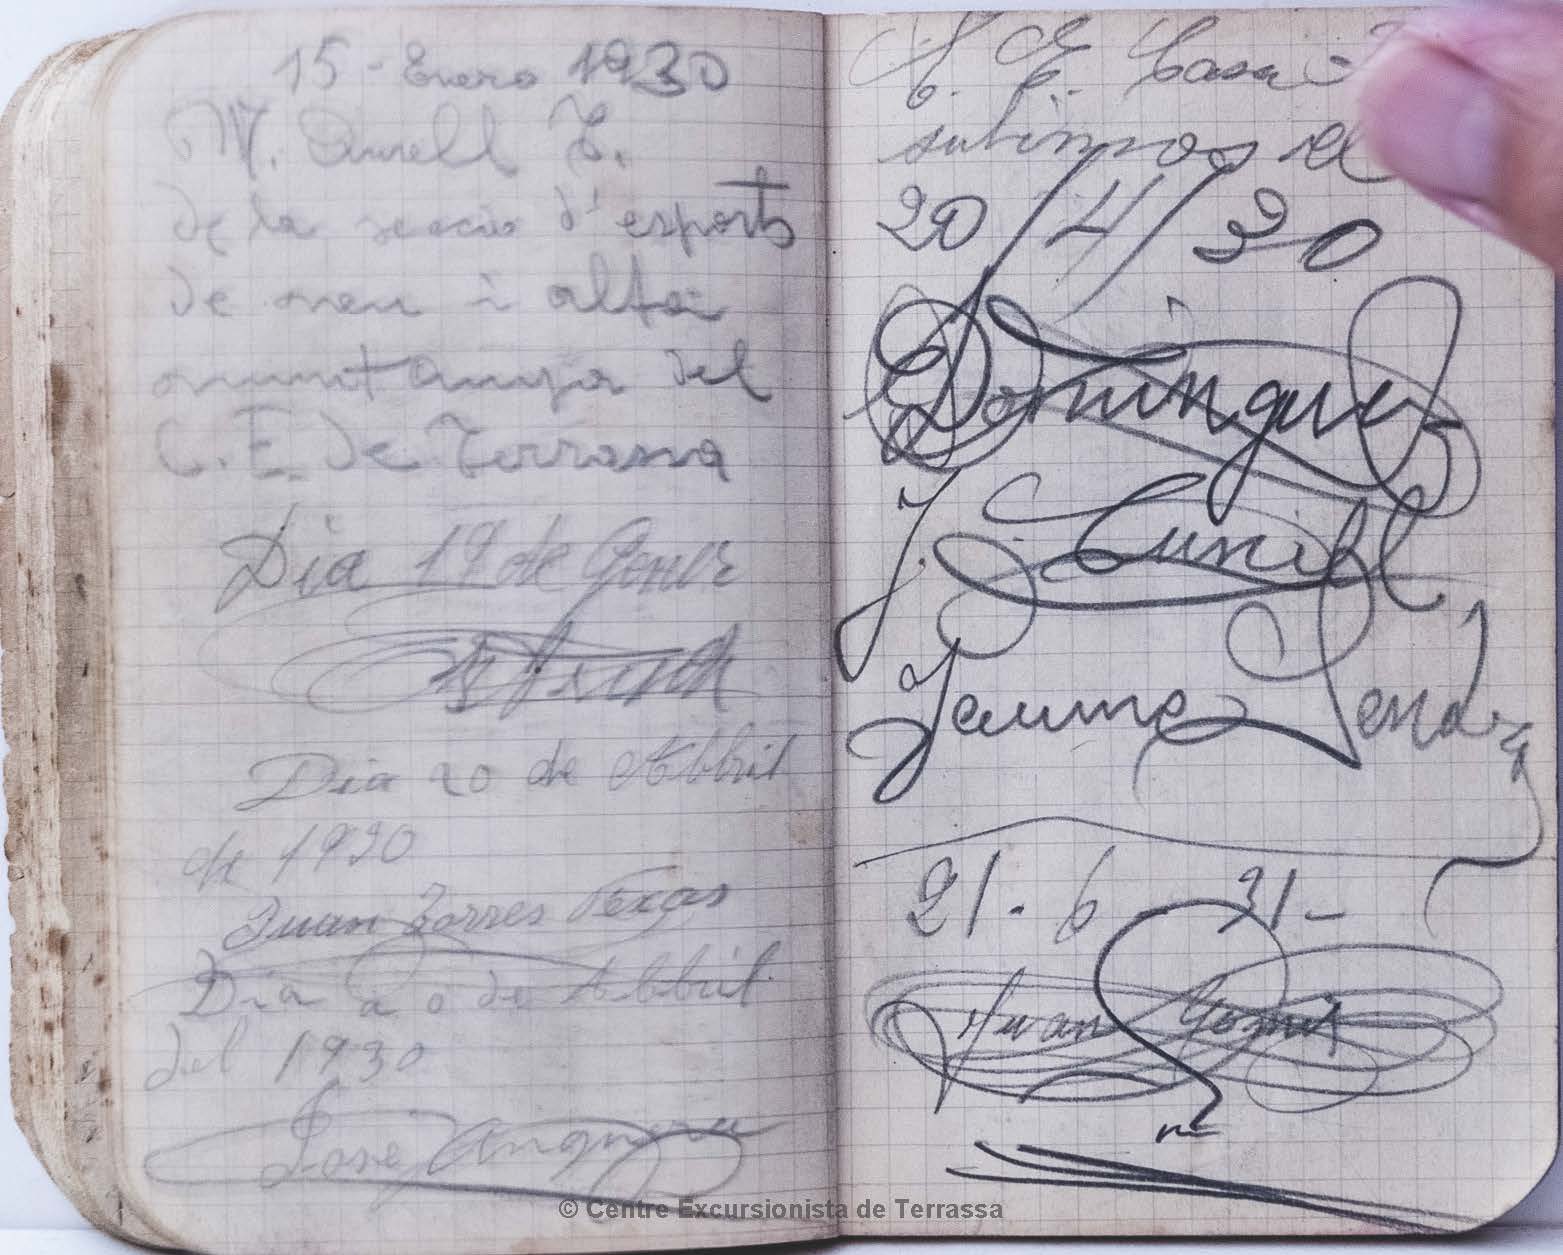 15 - Enero 1930
M. Aurell T.
de la secció d'esports
de neu i alta
muntanya del
C. E. de Terrassa
Dia 19 de Gener
Dia 20 de Abbril
de 1930
Juan Torres
Dia 20 de Abbril
del 1930
José Anguera
C. E. Casa
subimos el
20/4/30
Dominguez
J. Cunill
Jaume
21 - 6 31 -
Juan
© Centre Excursionista de Terrassa